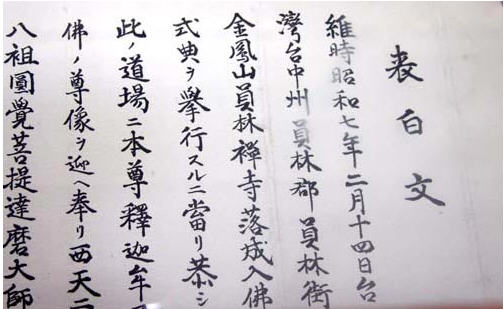 表白文
維時昭和七年二月十四日台
灣台中州員林郡員林街
金鳳山員林禪寺落成入佛
式典ヲ擧行スルニ當リ恭シ
此ノ道場ニ本尊釋迦牟
佛ノ尊像ヲ迎ヘ奉リ西天二
八祖圓覺菩提達磨大師